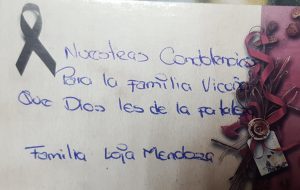 Nuestras Condolencias
Para la familia
Que Dios les de la fortaleza
Familia Loja Mendoza